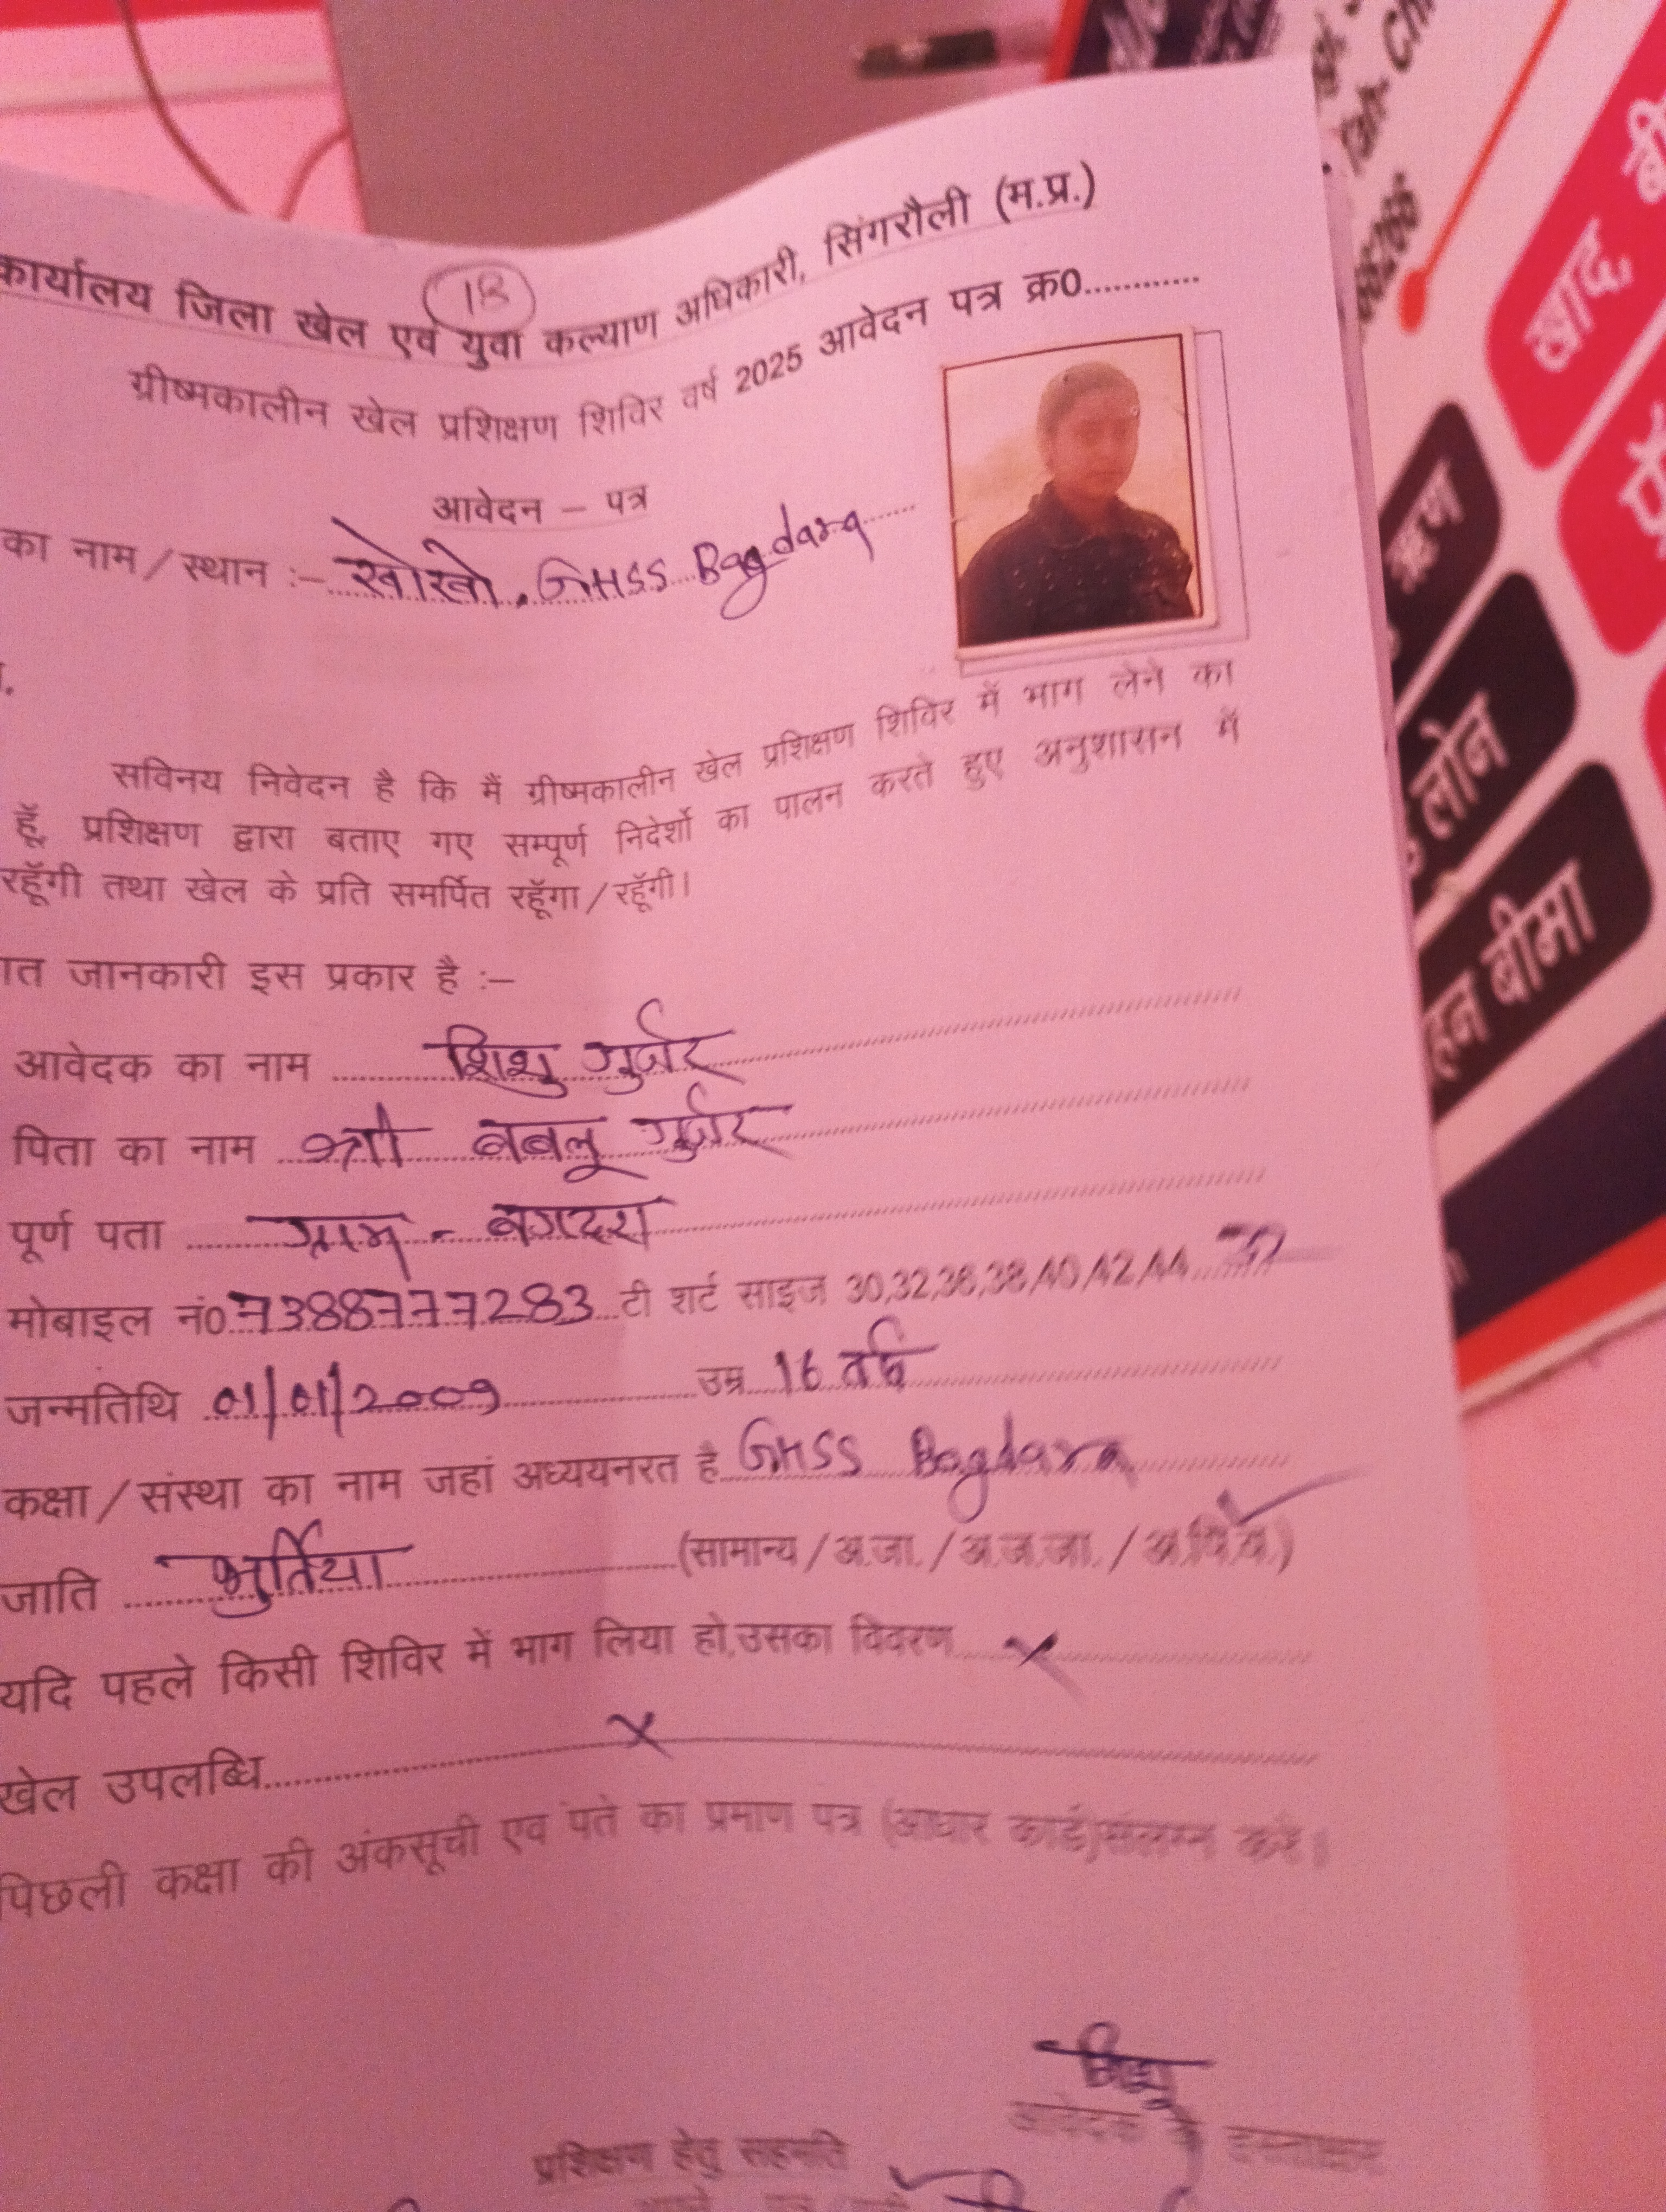 18
कार्यालय जिला खेल एवं युवा कल्याण अधिकारी, सिंगरौली (म.प्र.)
ग्रीष्मकालीन खेल प्रशिक्षण शिविर वर्ष 2025 आवेदन पत्र क्र0............
आवेदन – पत्र
का नाम/स्थान :– खोखो. GHSS Bagdara
सविनय निवेदन है कि मैं ग्रीष्मकालीन खेल प्रशिक्षण शिविर में भाग लेने का
हूँ, प्रशिक्षण द्वारा बताए गए सम्पूर्ण निदेर्शो का पालन करते हुए अनुशासन में
रहूँगी तथा खेल के प्रति समर्पित रहूँगा/रहूँगी।
जानकारी इस प्रकार है :–
आवेदक का नाम शिशु गुर्जर
पिता का नाम श्री बबलू गुर्जर
पूर्ण पता ग्राम - बगदरा
मोबाइल नं0 7388777283 टी शर्ट साइज 30,32,36,38,40,42,44
जन्मतिथि 01/01/2009 उम्र 16 वर्ष
कक्षा/संस्था का नाम जहां अध्ययनरत है GHSS Bagdara
जाति भुर्तिया (सामान्य/अ.जा./अ.ज.जा./अ.पि.व.)
यदि पहले किसी शिविर में भाग लिया हो,उसका विवरण ×
खेल उपलब्धि ×
पिछली कक्षा की अंकसूची एवं पते का प्रमाण पत्र (आधार कार्ड)संलग्न करें।
शिशु
आवेदक के हस्ताक्षर
प्रशिक्षण हेतु सहमति
खाद,
ऋण
लोन
बीमा